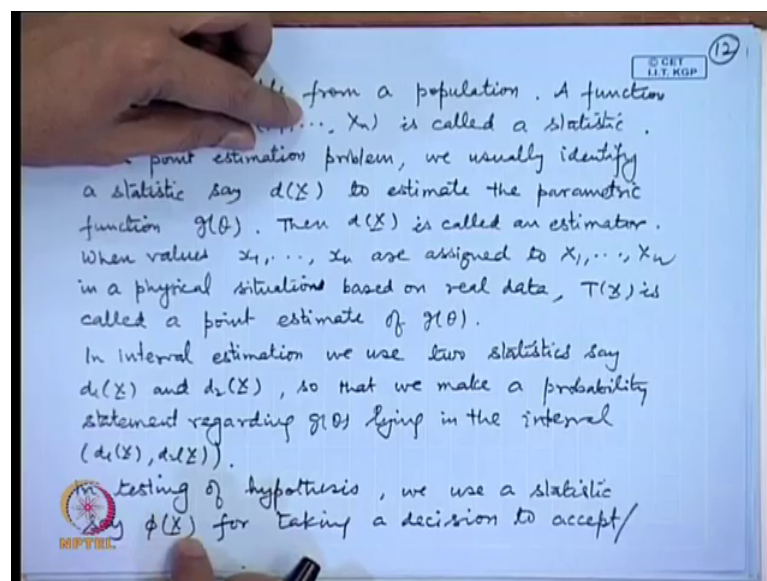 12
© CET
I.I.T. KGP
from a population. A function
..., Xn) is called a statistic.
point estimation problem, we usually identify
a statistic say d(X) to estimate the parametric
function g(θ). Then d(X) is called an estimator.
When values x1, ..., xn are assigned to X1, ..., Xn
in a physical situations based on real data, T(x) is
called a point estimate of g(θ).
In interval estimation we use two statistics say
d1(X) and d2(X), so that we make a probability
statement regarding g(θ) lying in the interval
(d1(X), d2(X)).
In testing of hypothesis, we use a statistic
say φ(X) for taking a decision to accept/
NPTEL